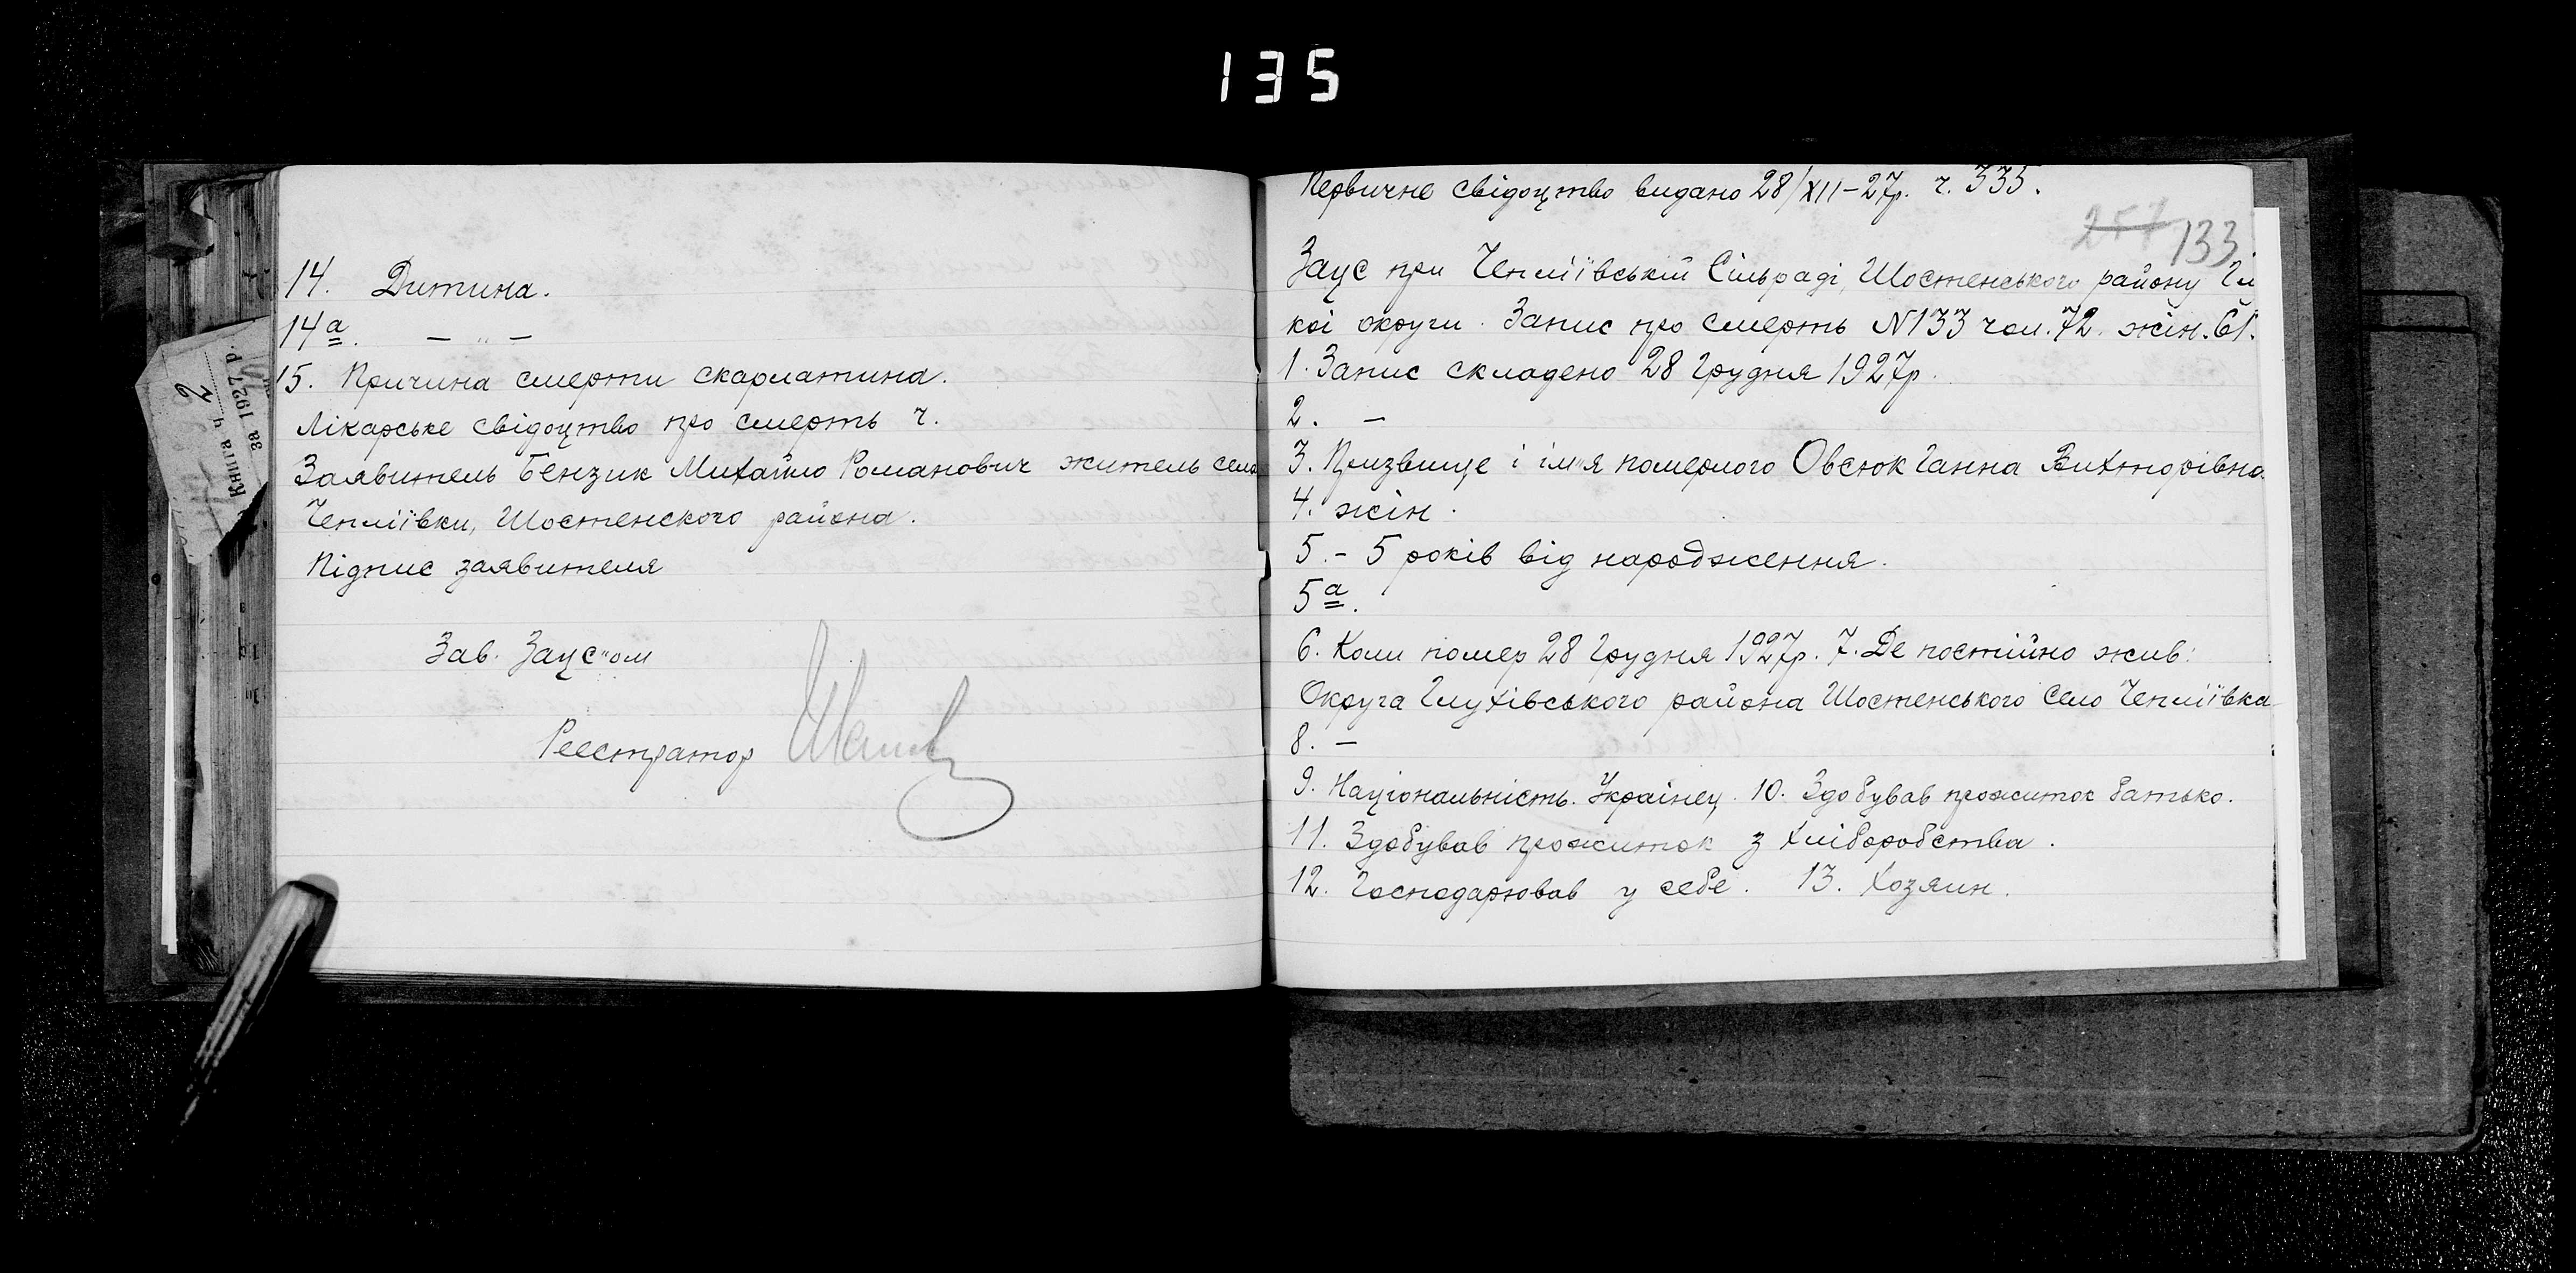 135
14. Дитина.
14а. — " —
15. Причина смерти скарлатина.
Лікарське свідоцтво про смерть ч.
Заявитель Бензик Михайло Романович житель села
Чепліївки, Шостенского района.
Підпис заявителя
Зав. Загс"ом
Реестратор
Книга ч. 2
за 1927 р.
Первичне свідоцтво видано 28/XII-27р. ч. 335.
257 133
Загс при Чепліївській Сільраді, Шостенського району Гл
кої округи. Запис про смерть N133 чол. 72. жін. 61.
1. Запис складено 28 Грудня 1927р.
2. —
3. Призвище і ім"я померлого Овсюк Ганна Вихторівна
4. жін.
5. - 5 років від народження.
5а.
6. Коли помер 28 Грудня 1927р. 7. Де постійно жив:
Округа Глухівського района Шостенського Село Чепліївка
8. —
9. Національність. Украінец. 10. Здобував прожиток батько.
11. Здобував прожиток з хліборобства.
12. Господарював у себе. 13. Хозяин.